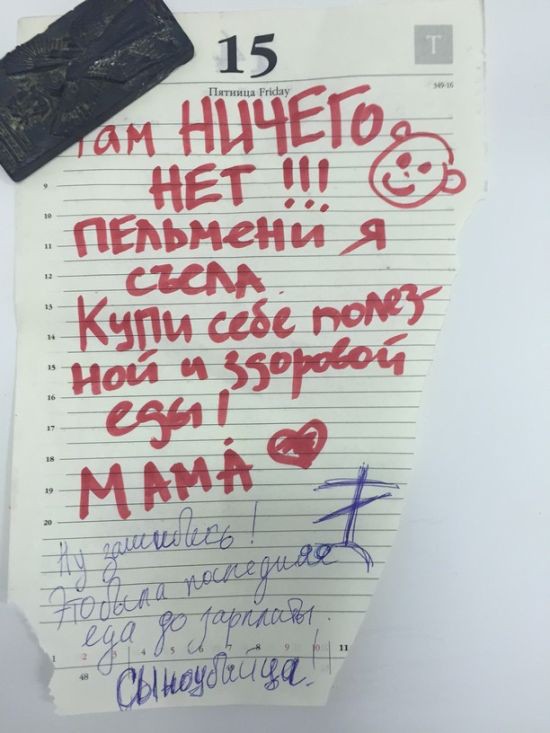 15
Т
Пятница Friday
349-16
Там НИЧЕГО
НЕТ !!!
9
10
ПЕЛЬМЕНИ Я
11
12
СЪЕЛА.
13
Купи себе полез-
14
ной и здоровой
15
16
еды!
17
18
МАМА
19
20
Ну зашибись!
Это была последняя
еда до зарплаты.
1 2 3 4 5 6 7 8 9 10 11
48
Сыноубийца!